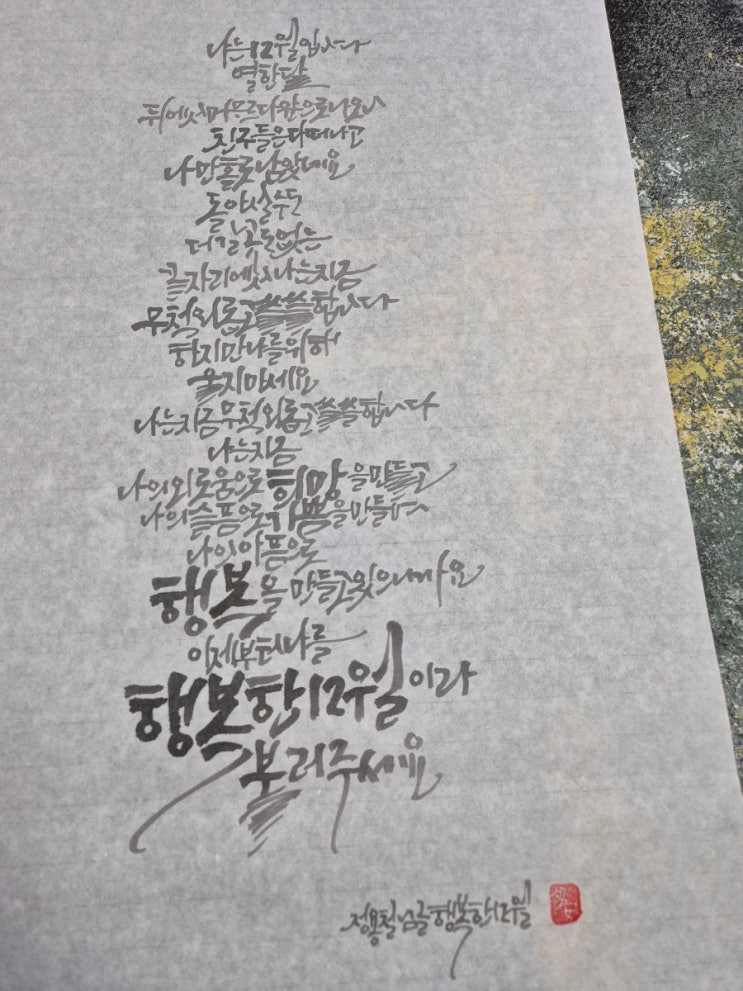 나는 12월입니다
열한달
뒤에서 머무르다 앞으로 나오니
친구들은 다 떠나고
나만 홀로 남았네요
돌아설 수도
더 갈 곳도 없는
끝자리에서 나는 지금
무척 외롭고 쓸쓸합니다
하지만 나를 위해
울지 마세요
나는 지금 무척 외롭고 쓸쓸합니다
나는 지금
나의 외로움으로 희망을 만들고
나의 슬픔으로 기쁨을 만들며
나의 아픔으로
행복을 만들고 있으니까요
이제부터 나를
행복한 12월이라
불러주세요
정용철님글 행복한 12월